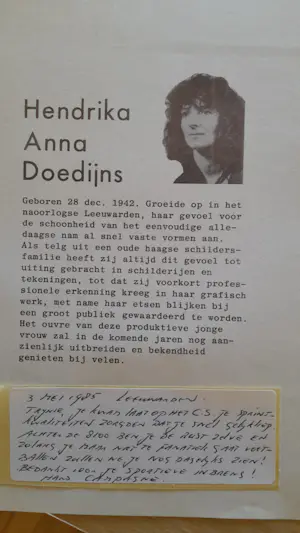 Hendrika
Anna
Doedijns
Geboren 28 dec. 1942. Groeide op in het
naoorlogse Leeuwarden, haar gevoel voor
de schoonheid van het eenvoudige alle-
daagse nam al snel vaste vormen aan.
Als telg uit een oude haagse schilders-
familie heeft zij altijd dit gevoel tot
uiting gebracht in schilderijen en
tekeningen, tot dat zij voorkort profes-
sionele erkenning kreeg in haar grafisch
werk, met name haar etsen blijken bij
een groot publiek gewaardeerd te worden.
Het ouvre van deze produktieve jonge
vrouw zal in de komende jaren nog aan-
zienlijk uitbreiden en bekendheid
genieten bij velen.
3 MEI 1985 LEEUWARDEN.
JE KWAM LAAT OP HET C.S. JE SPRINT-
KWALITEITEN ZORGDEN DAT JE SNEL
ACHTER DE BEN JE DE RUST ZELVE EN
ZOLANG JE FANATIEK GAAT VOET-
BALLEN ZULLEN WE JE NOG DAGELIJKS ZIEN!
BEDANKT VOOR JE SPORTIEVE INBRENG!
HANS CAMPAGNE